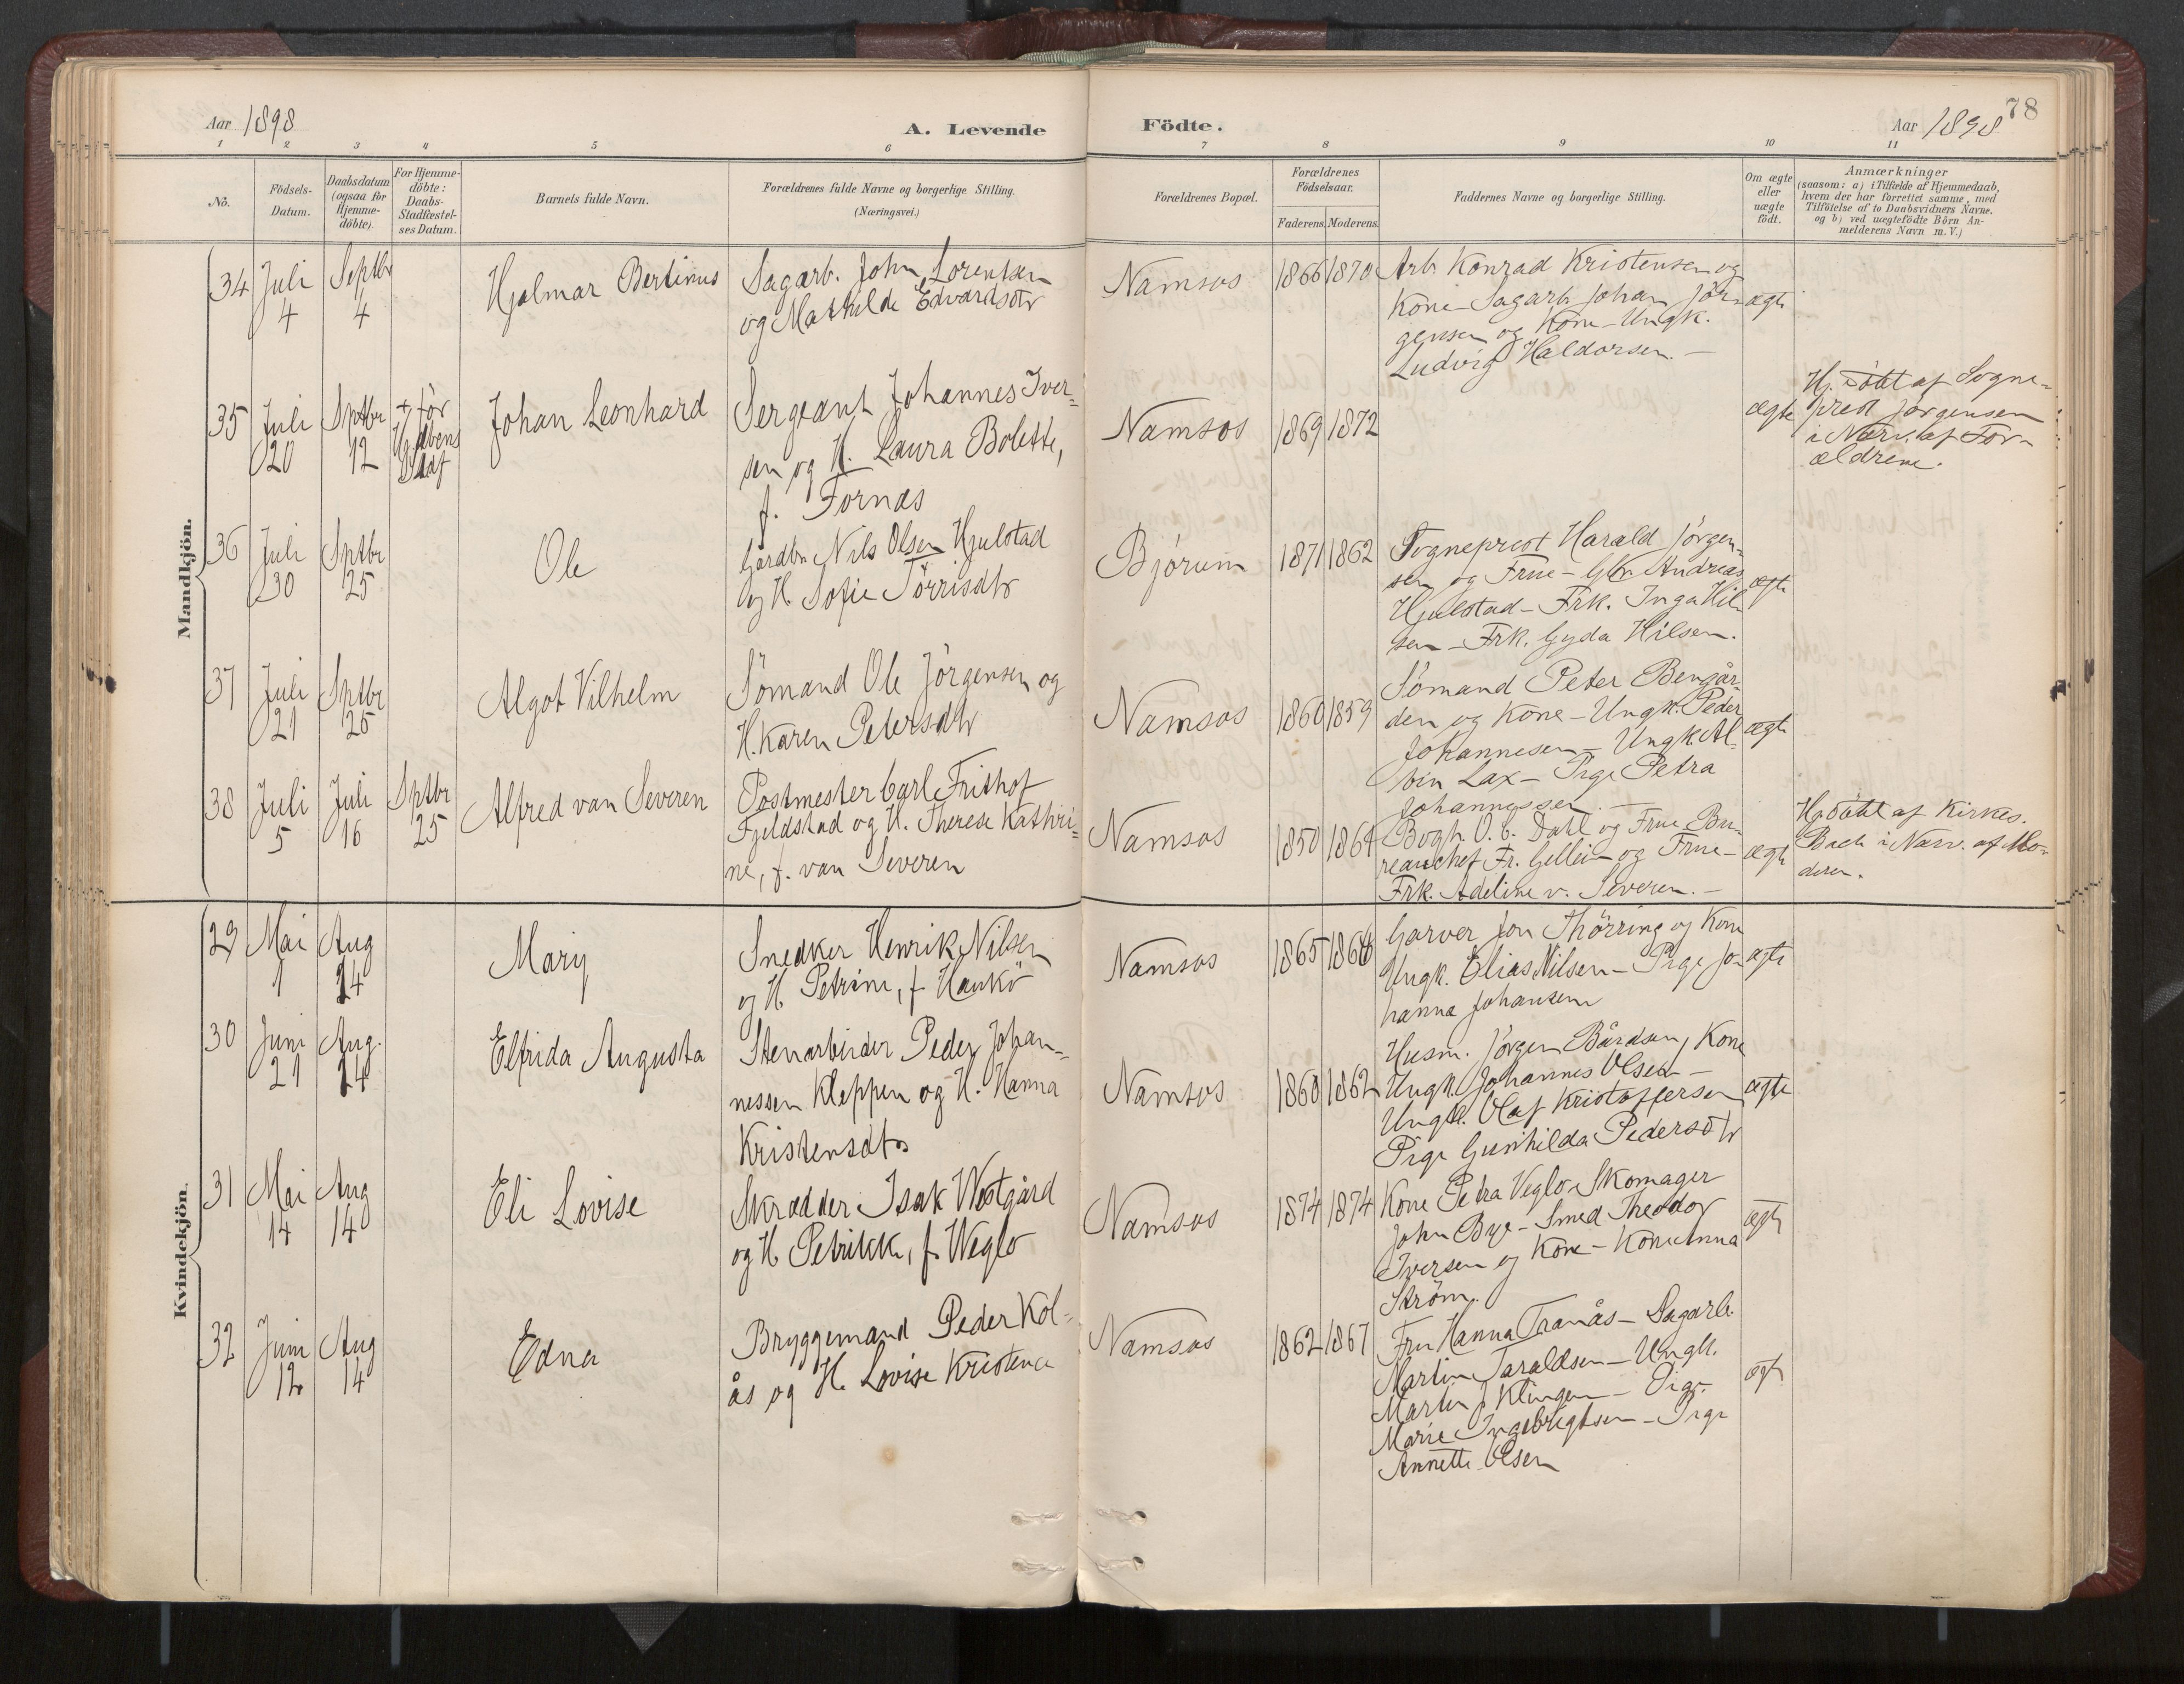 Aar 1898
A. Levende
Födte.
Aar 1898
78
1 2 3 4 5 6 7 8 9 10 11
No.
Födsels-
Datum.
Daabsdatum
(ogsaa for
Hjemme-
döbte)
For Hjemme-
döbte:
Daabs-
Stadfæstel-
ses Datum.
Barnets fulde Navn.
Forældrenes fulde Navne og borgerlige Stilling.
(Næringsvei.)
Forældrenes Bopæl.
Forældrenes
Födselsaar.
Faderens. Moderens.
Faddernes Navne og borgerlige Stilling.
Om ægte
eller
uægte
födt.
Anmærkninger
(saasom: a) i Tilfælde af Hjemmedaab,
hvem der har forrettet samme, med
Tilföielse af to Daabsvidners Navne.
og b) ved uægtefödte Börn An-
melderens Navn m. V.)
Mandkjön.
34
Juli
4
Septbr
4
Hjalmar Bertinus
Sagarb. John Lorentsen
og Mathilde Edvardsdtr
Namsos
1866 1870
Arb. Konrad Kristensen og
Kone - Sagarb. Johan Jör-
gensen og Kone - Ungk.
Ludvig Haldorsen. -
ægte
35
Juli
20
Sptbr
12
+ för
Johan Leonhard
Sergeant Johannes Iver-
sen og H. Laura Bolette,
f. Fornæs
Namsos
1869 1872
ægte
Hj. döbt af Sogne-
prest Jörgensen
i Nærv. af For-
ældrene.
36
Juli
30
Sptbr
25
Ole
Gårdbr Nils Olsen Hjulstad
og H. Sofie Törrisdtr
Bjørum
1871 1862
Sogneprest Harald Jörgen-
sen og Frue - Gbr. Andreas
Hjulstad - Frk. Inga Hil-
sen - Frk. Gyda Hilsen.
ægte
37
Juli
21
Sptbr
25
Algot Vilhelm
Sömand Ole Jörgensen og
H. Karen Petersdtr
Namsos
1860 1859
Sömand Peter Bengår-
den og Kone - Ungk. Peder
Johannesen - Ungk. Al-
bin Lax - Pige Petra
Johannessen. -
ægte
38
Juli
5
Juli
16
Sptbr
25
Alfred van Severen
Postmester Carl Frithof
Fjeldstad og H. Therese Kathri-
ne, f. van Severen
Namsos
1850 1864
Bogh. O. C. Dahl og Frue Bu-
reauchef Fr. Gellein og Frue -
Frk. Adeline v. Severen. -
ægte
Hj. döbt af Kirkes.
Bach i Nærv. af Mo-
deren.
Kvindekjön.
29
Mai
1
Aug
14
Mary
Snedker Henrik Nilsen
og H. Petrine, f. Haukö
Namsos
1865
Garver Jon Thörring og Kone
Ungk. Elias Nilsen - Pige Jo-
hanna Johansen
ægte
30
Juni
21
Aug.
14
Elfrida Augusta
Stenarbeider Peder Johan-
nessen Kleppen og H. Hanna
Kristensdtr
Namsos
1860 1862
Husm. Jörgen Bårdsen, Kone
Ungk. Johannes Olsen -
Ungk. Olaf Kristoffersen
Pige Gunhilda Pedersdtr
ægte
31
Mai
14
Aug
14
Eli Lovise
Skrædder Isak Westgård
og H. Petrikke, f. Weglo
Namsos
1874 1874
Kone Petra Veglo - Skomager
John Bye - Smed Theodor
Iversen og Kone - Kone Anna
Ström.
ægte
32
Juni
12
Aug
14
Edna
Bryggemand Peder Kol-
ås og H. Lovise Kristence
Namsos
1862 1867
Fru Hanna Tranås - Sagarb.
Martin Taraldsen - Ungk.
Martin J. Klingen - Pige
Marie Ingebrigtsen - Pige
Annette Olsen
ægte